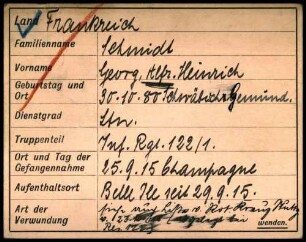 Land Frankreich
Familienname Schmidt
Vorname Georg, Alfr. Heinrich
Geburtstag und Ort 30.10.80 Schwäbisch Gemünd.
Dienstgrad Ltn.
Truppenteil Inf. Rgt. 122/1.
Ort und Tag der Gefangennahme 25.9.15 Champagne
Aufenthaltsort Belle Ile seit 29.9.15.
Art der Verwundung
wenden.